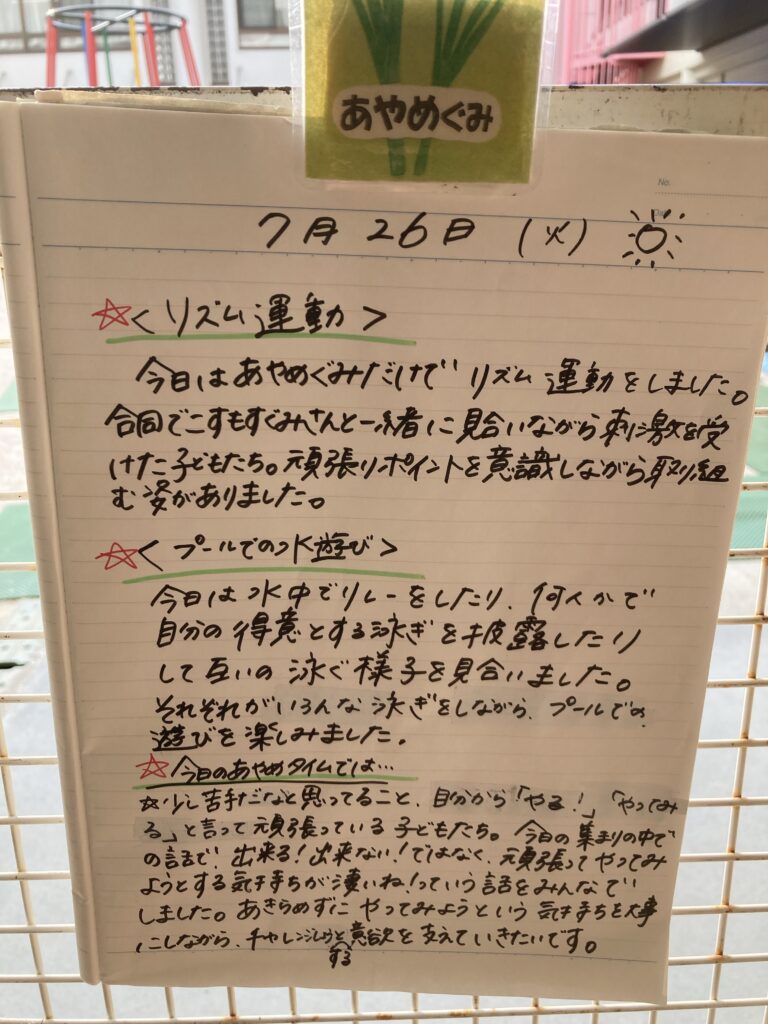 あやめぐみ
No.
7月26日(火)
☆<リズム運動>
今日はあやめぐみだけでリズム運動をしました。
合同でこすもすぐみさんと一緒に見合いながら刺激を受
けた子どもたち。頑張りポイントを意識しながら取り組
む姿がありました。
☆<プールでの水遊び>
今日は水中でリレーをしたり、何人かで
自分の得意とする泳ぎを披露したり
して互いの泳ぐ様子を見合いました。
それぞれがいろんな泳ぎをしながら、プールでの
遊びを楽しみました。
☆今日のあやめタイムでは…
☆少し苦手だなと思ってること、自分から「やる!」「やってみ
る」と言って頑張っている子どもたち。今日の集まりの中で
の話で、出来る!出来ない!ではなく、頑張ってやってみ
ようとする気持ちが凄いね!っていう話をみんなで
しました。あきらめずにやってみようという気持ちを大事
にしながら、チャレンジしようとする意欲を支えていきたいです。